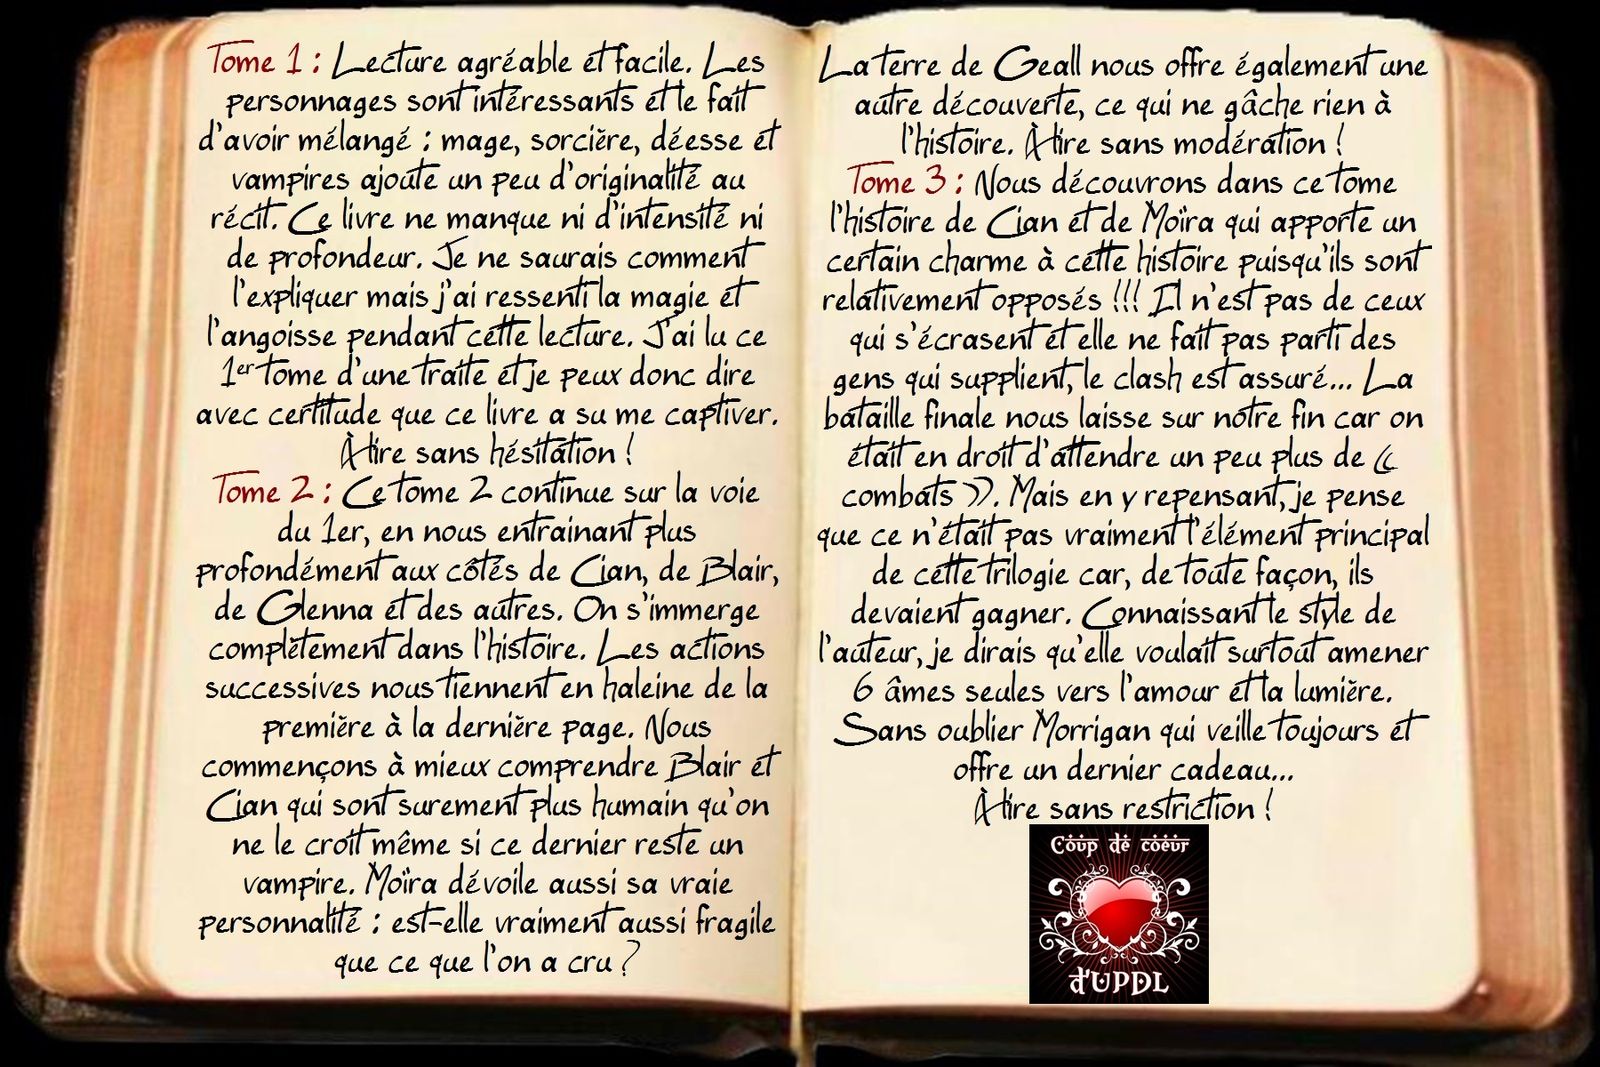 Tome 1 : Lecture agréable et facile. Les
personnages sont intéressants et le fait
d'avoir mélangé : mage, sorcière, déesse et
vampires ajoute un peu d'originalité au
récit. Ce livre ne manque ni d'intensité ni
de profondeur. Je ne saurais comment
l'expliquer mais j'ai ressenti la magie et
l'angoisse pendant cette lecture. J'ai lu ce
1er tome d'une traite et je peux donc dire
avec certitude que ce livre a su me captiver.
À lire sans hésitation !
Tome 2 : Ce tome 2 continue sur la voie
du 1er, en nous entrainant plus
profondément aux côtés de Cian, de Blair,
de Glenna et des autres. On s'immerge
complètement dans l'histoire. Les actions
successives nous tiennent en haleine de la
première à la dernière page. Nous
commençons à mieux comprendre Blair et
Cian qui sont surement plus humain qu'on
ne le croit même si ce dernier reste un
vampire. Moïra dévoile aussi sa vraie
personnalité : est-elle vraiment aussi fragile
que ce que l'on a cru ?
La terre de Geall nous offre également une
autre découverte, ce qui ne gâche rien à
l'histoire. À lire sans modération !
Tome 3 : Nous découvrons dans ce tome
l'histoire de Cian et de Moïra qui apporte un
certain charme à cette histoire puisqu'ils sont
relativement opposés !!! Il n'est pas de ceux
qui s'écrasent et elle ne fait pas parti des
gens qui supplient, le clash est assuré... La
bataille finale nous laisse sur notre fin car on
était en droit d'attendre un peu plus de «
combats ». Mais en y repensant, je pense
que ce n'était pas vraiment l'élément principal
de cette trilogie car, de toute façon, ils
devaient gagner. Connaissant le style de
l'auteur, je dirais qu'elle voulait surtout amener
6 âmes seules vers l'amour et la lumière.
Sans oublier Morrigan qui veille toujours et
offre un dernier cadeau...
À lire sans restriction !
Coup de coeur
d'UPDL